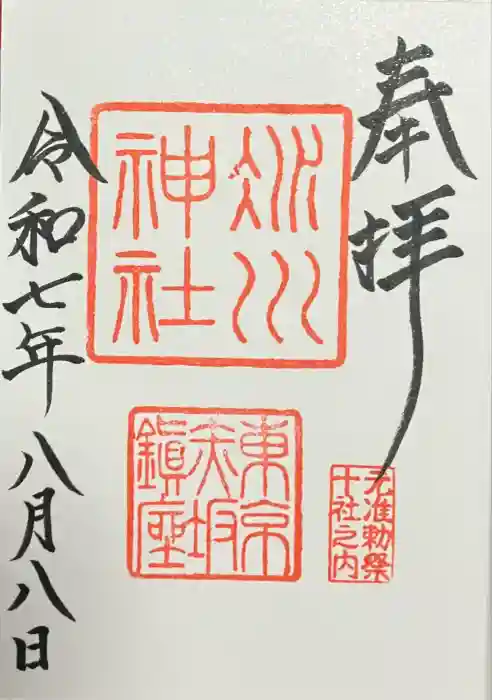 奉拝
元准勅祭
十社之内
冰川
神社
東京
赤坂
鎭座
令和七年八月八日